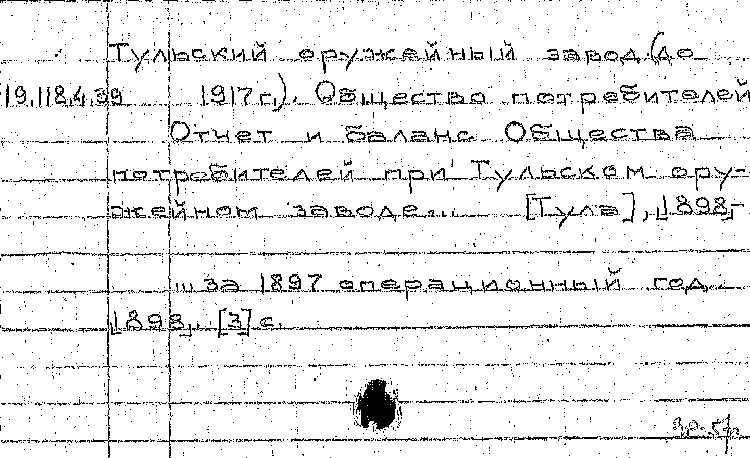 Тульский оружейный завод (до
19.118.4.39 1917 г.). Общество потребителей
Отчет и баланс Общества
потребителей при Тульском ору-
жейном заводе... [Тула], 1898-
... за 1897 операционный год.
1898. [3] с.